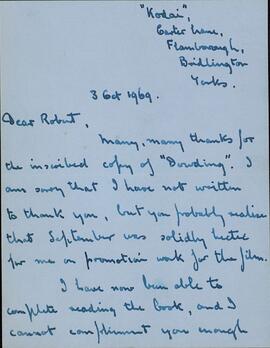 "Kodai",
Easter Lane,
Flamborough,
Bridlington
Yorks.
3 Oct 1969.
Dear Robert,
Many, many thanks for
the inscribed copy of "Dowding". I
am sorry that I have not written
to thank you, but you probably realise
that September was solidly hectic
for me on promotion work for the film.
I have now been able to
complete reading the book, and I
cannot compliment you enough